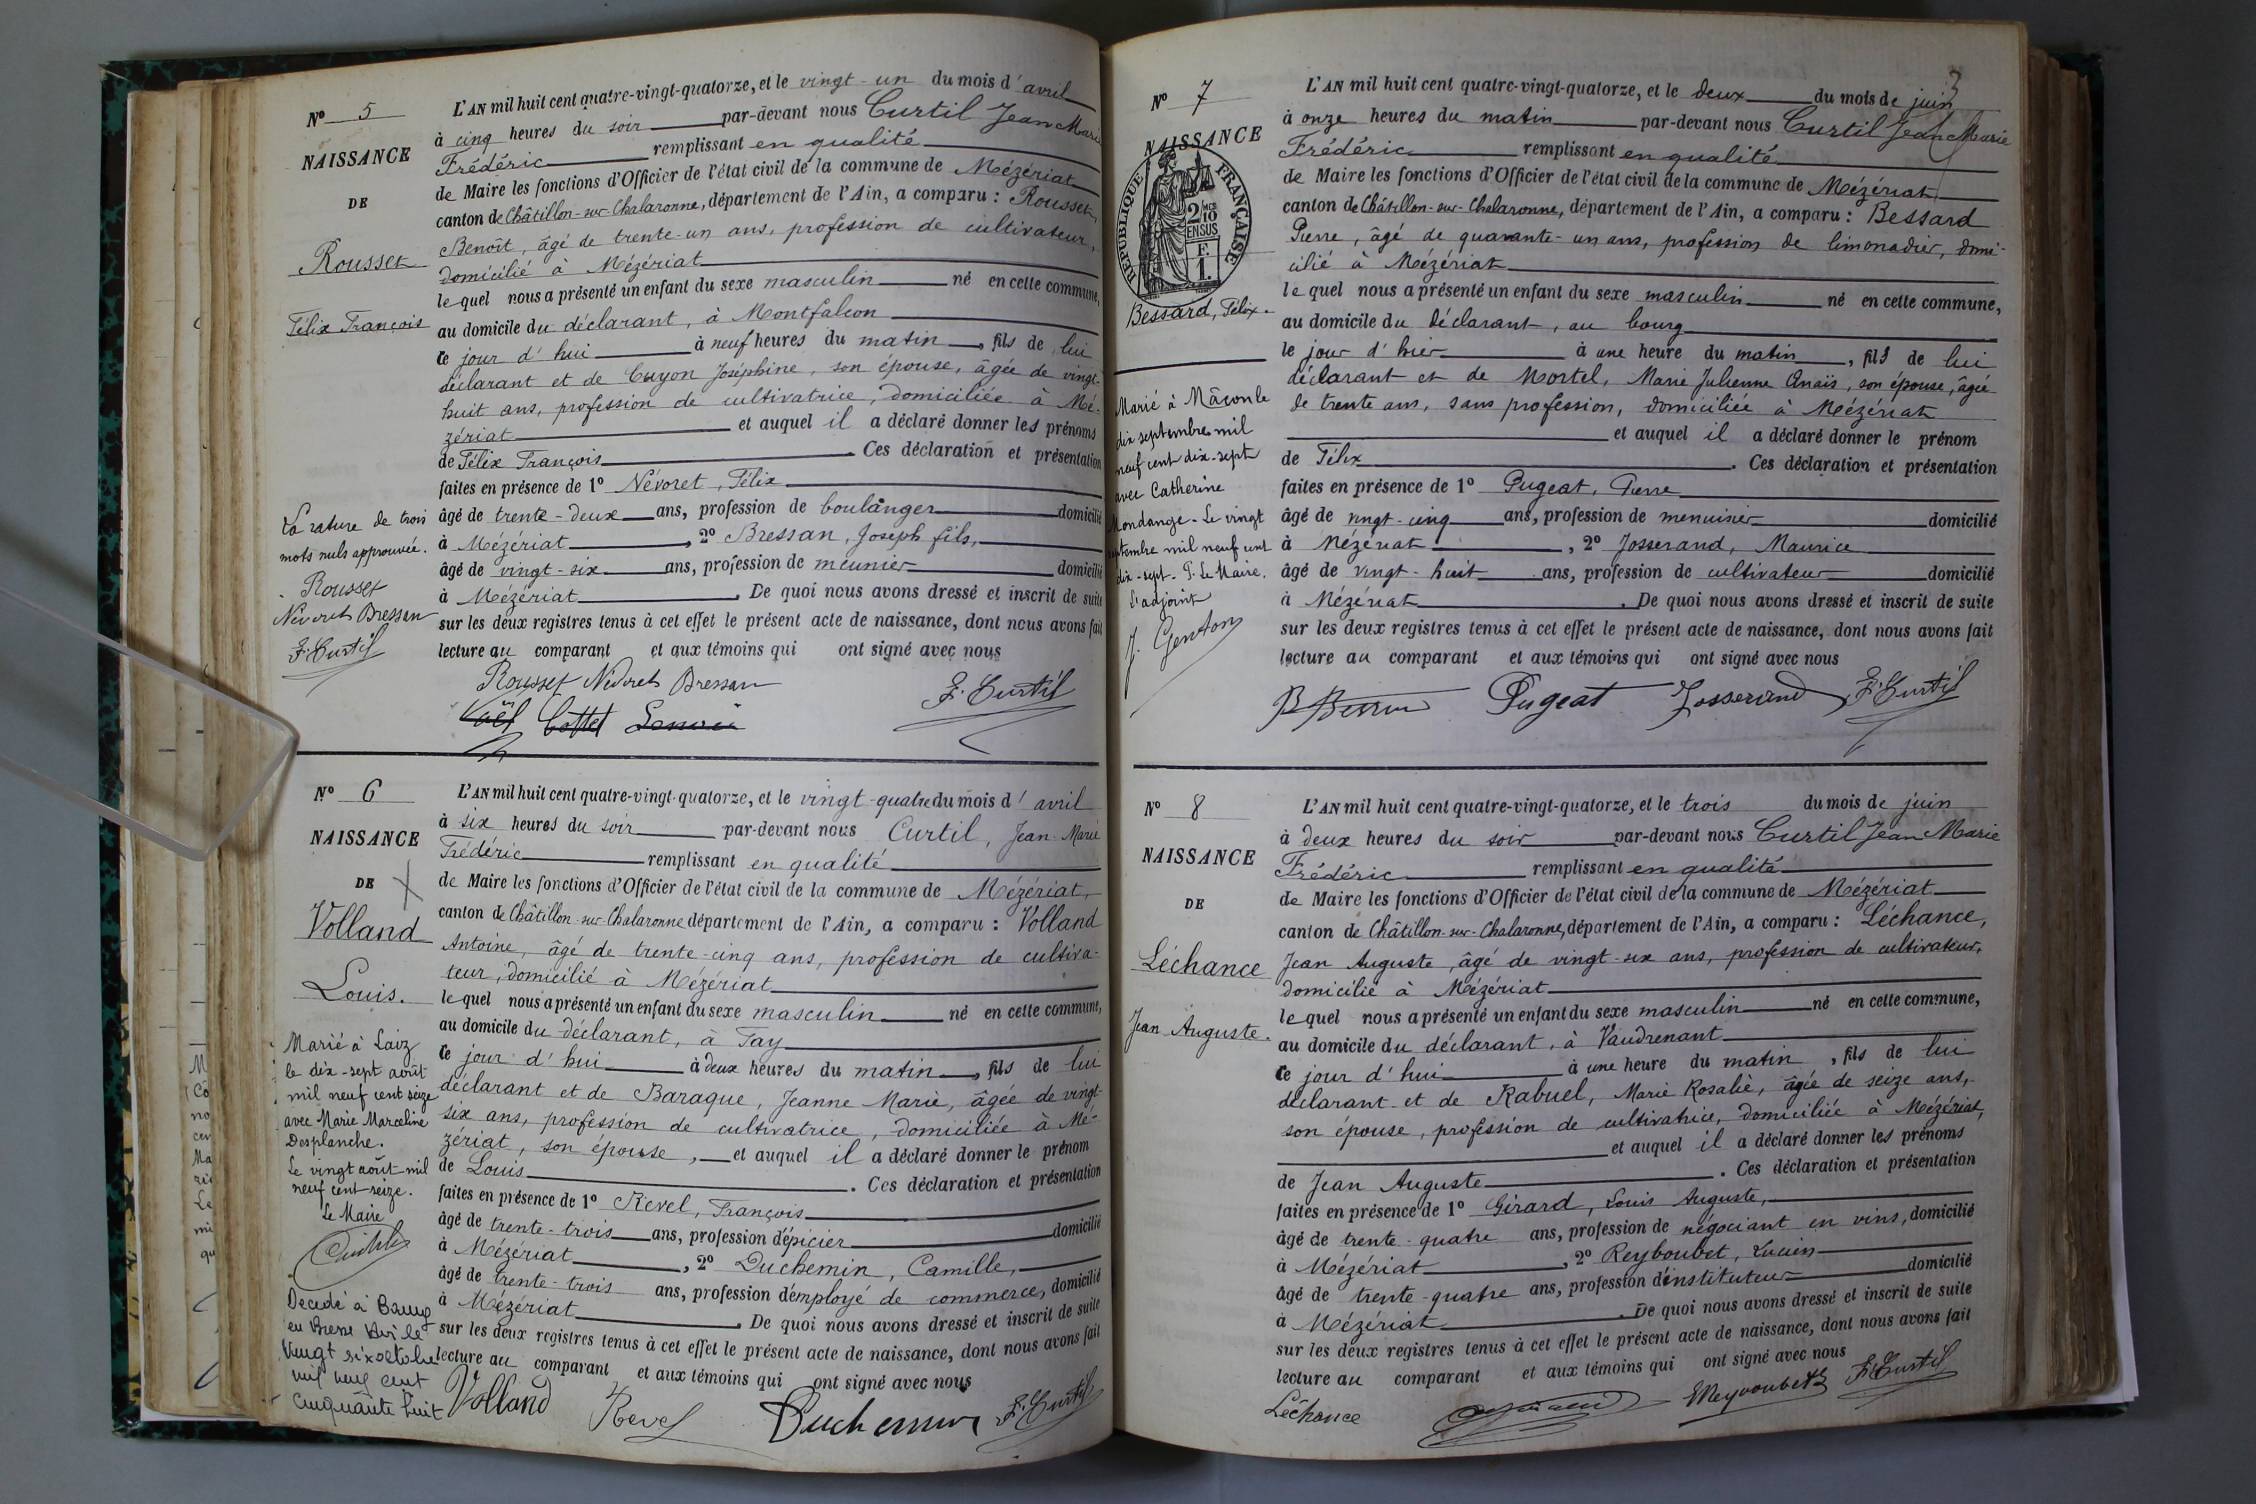 N° 5
NAISSANCE
DE
Rousset
Félix François
La rature de trois
mots nuls approuvée.
Rousset
Névoret Bressan
F. Curtil
L'AN mil huit cent quatre-vingt-quatorze, et le vingt-un du mois d'avril
à cinq heures du soir par-devant nous Curtil Jean Marie
Frédéric remplissant en qualité
de Maire les fonctions d'Officier de l'état civil de la commune de Mézériat
canton de Châtillon-sur-Chalaronne, département de l'Ain, a comparu : Rousset
Benoît, âgé de trente-un ans, profession de cultivateur,
domicilié à Mézériat
lequel nous a présenté un enfant du sexe masculin né en cette commune,
au domicile du déclarant, à Montfalcon
ce jour d'hui à neuf heures du matin, fils de lui
déclarant et de Guyon Joséphine, son épouse, âgée de vingt-
huit ans, profession de cultivatrice, domiciliée à Mé-
zériat et auquel il a déclaré donner les prénoms
de Félix François. Ces déclaration et présentation
faites en présence de 1° Névoret, Félix
âgé de trente-deux ans, profession de boulanger domicilié
à Mézériat, 2° Bressan, Joseph fils,
âgé de vingt-six ans, profession de meunier domicilié
à Mézériat. De quoi nous avons dressé et inscrit de suite
sur les deux registres tenus à cet effet le présent acte de naissance, dont nous avons fait
lecture au comparant et aux témoins qui ont signé avec nous
Rousset Névoret Bressan F. Curtil
N° 6
NAISSANCE
DE
Volland
Louis.
Marié à Laiz
le dix-sept août
mil neuf cent seize
avec Marie Marceline
Desplanche.
Le vingt août mil
neuf cent seize.
Le Maire
Décédé à Bourg
en Bresse le
vingt six octobre
mil neuf cent
cinquante huit
L'AN mil huit cent quatre-vingt-quatorze, et le vingt-quatre du mois d'avril
à six heures du soir par-devant nous Curtil, Jean-Marie
Frédéric remplissant en qualité
de Maire les fonctions d'Officier de l'état civil de la commune de Mézériat,
canton de Châtillon-sur-Chalaronne département de l'Ain, a comparu : Volland
Antoine, âgé de trente-cinq ans, profession de cultiva-
teur, domicilié à Mézériat
lequel nous a présenté un enfant du sexe masculin né en cette commune,
au domicile du déclarant, à Fay
ce jour d'hui à deux heures du matin, fils de lui
déclarant et de Baraque, Jeanne Marie, âgée de vingt-
six ans, profession de cultivatrice, domiciliée à Mé-
zériat, son épouse, et auquel il a déclaré donner le prénom
de Louis. Ces déclaration et présentation
faites en présence de 1° Revel, François
âgé de trente-trois ans, profession d'épicier domicilié
à Mézériat, 2° Duchemin, Camille,
âgé de trente-trois ans, profession d'employé de commerce, domicilié
à Mézériat. De quoi nous avons dressé et inscrit de suite
sur les deux registres tenus à cet effet le présent acte de naissance, dont nous avons fait
lecture au comparant et aux témoins qui ont signé avec nous
Volland Revel Duchemin F. Curtil
3
N° 7
NAISSANCE
RÉPUBLIQUE FRANÇAISE
2/10 EN SUS
F.
1.
Bessard, Félix.
Marié à Mâcon le
dix septembre mil
neuf cent dix-sept
avec Catherine
Mondange. Le vingt
septembre mil neuf cent
dix-sept. P. Le Maire.
L'adjoint
J. Genton
L'AN mil huit cent quatre-vingt-quatorze, et le deux du mois de juin
à onze heures du matin par-devant nous Curtil Jean Marie
Frédéric remplissant en qualité
de Maire les fonctions d'Officier de l'état civil de la commune de Mézériat
canton de Châtillon-sur-Chalaronne, département de l'Ain, a comparu : Bessard
Pierre, âgé de quarante-un ans, profession de limonadier, domi-
cilié à Mézériat
lequel nous a présenté un enfant du sexe masculin né en cette commune,
au domicile du déclarant, au bourg
le jour d'hier à une heure du matin, fils de lui
déclarant et de Mortel, Marie Julienne Anaïs, son épouse, âgée
de trente ans, sans profession, domiciliée à Mézériat
et auquel il a déclaré donner le prénom
de Félix. Ces déclaration et présentation
faites en présence de 1° Pugeat, Pierre
âgé de vingt-cinq ans, profession de menuisier domicilié
à Mézériat, 2° Josserand, Maurice
âgé de vingt-huit ans, profession de cultivateur domicilié
à Mézériat. De quoi nous avons dressé et inscrit de suite
sur les deux registres tenus à cet effet le présent acte de naissance, dont nous avons fait
lecture au comparant et aux témoins qui ont signé avec nous
Pugeat Josserand F. Curtil
N° 8
NAISSANCE
DE
Léchance
Jean Auguste.
L'AN mil huit cent quatre-vingt-quatorze, et le trois du mois de juin
à deux heures du soir par-devant nous Curtil Jean Marie
Frédéric remplissant en qualité
de Maire les fonctions d'Officier de l'état civil de la commune de Mézériat
canton de Châtillon-sur-Chalaronne, département de l'Ain, a comparu : Léchance,
Jean Auguste, âgé de vingt-six ans, profession de cultivateur,
domicilié à Mézériat
lequel nous a présenté un enfant du sexe masculin né en cette commune,
au domicile du déclarant, à Vaudrenant
ce jour d'hui à une heure du matin, fils de lui
déclarant et de Rabuel, Marie Rosalie, âgée de seize ans,
son épouse, profession de cultivatrice, domiciliée à Mézériat,
et auquel il a déclaré donner les prénoms
de Jean Auguste. Ces déclaration et présentation
faites en présence de 1° Girard, Louis Auguste,
âgé de trente-quatre ans, profession de négociant en vins, domicilié
à Mézériat, 2° Reyboubet, Lucien
âgé de trente-quatre ans, profession d'instituteur domicilié
à Mézériat. De quoi nous avons dressé et inscrit de suite
sur les deux registres tenus à cet effet le présent acte de naissance, dont nous avons fait
lecture au comparant et aux témoins qui ont signé avec nous
Léchance F. Curtil